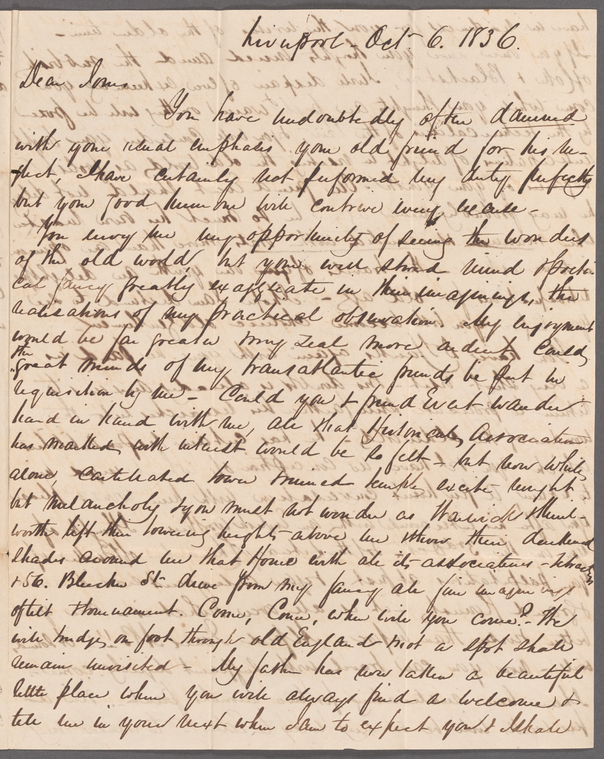 Liverpool - Oct 6. 1836.
Dear Jones
You have undoubtedly often damned
with your usual emphasis your old friend for his ne-
glect, I have certainly not performed my duty perfectly
but your good humour will contrive every excuse -
You envy me my opportunity of seeing the wonders
of the old world, but your well stored mind & poeti-
cal fancy greatly exaggerate in their imaginings the
realisations of my practical observation. My enjoyment
would be far greater my zeal more ardent, Could
the great minds of my transatlantic friends be put in
requisition by me - Could you & friend Evert wander
hand in hand with me, all that History and Association
has marked with interest would be so felt - but now while
alone castellated tower ruined temple excite nought
but melancholy & you must not wonder as Warwick & Kenil-
worth lift their towering heights above me & throw their darkened
shades around me that Home with all its associations -
& 56. Bleecker St. drive from my fancy all fair imaginings
of tilt & tournament. Come, Come, when will you come? - We
will trudge on foot through old England & not a spot shall
remain unvisited - My father has now taken a beautiful
little place where you will always find a welcome &
tell me in your next when I am to expect you & I shall